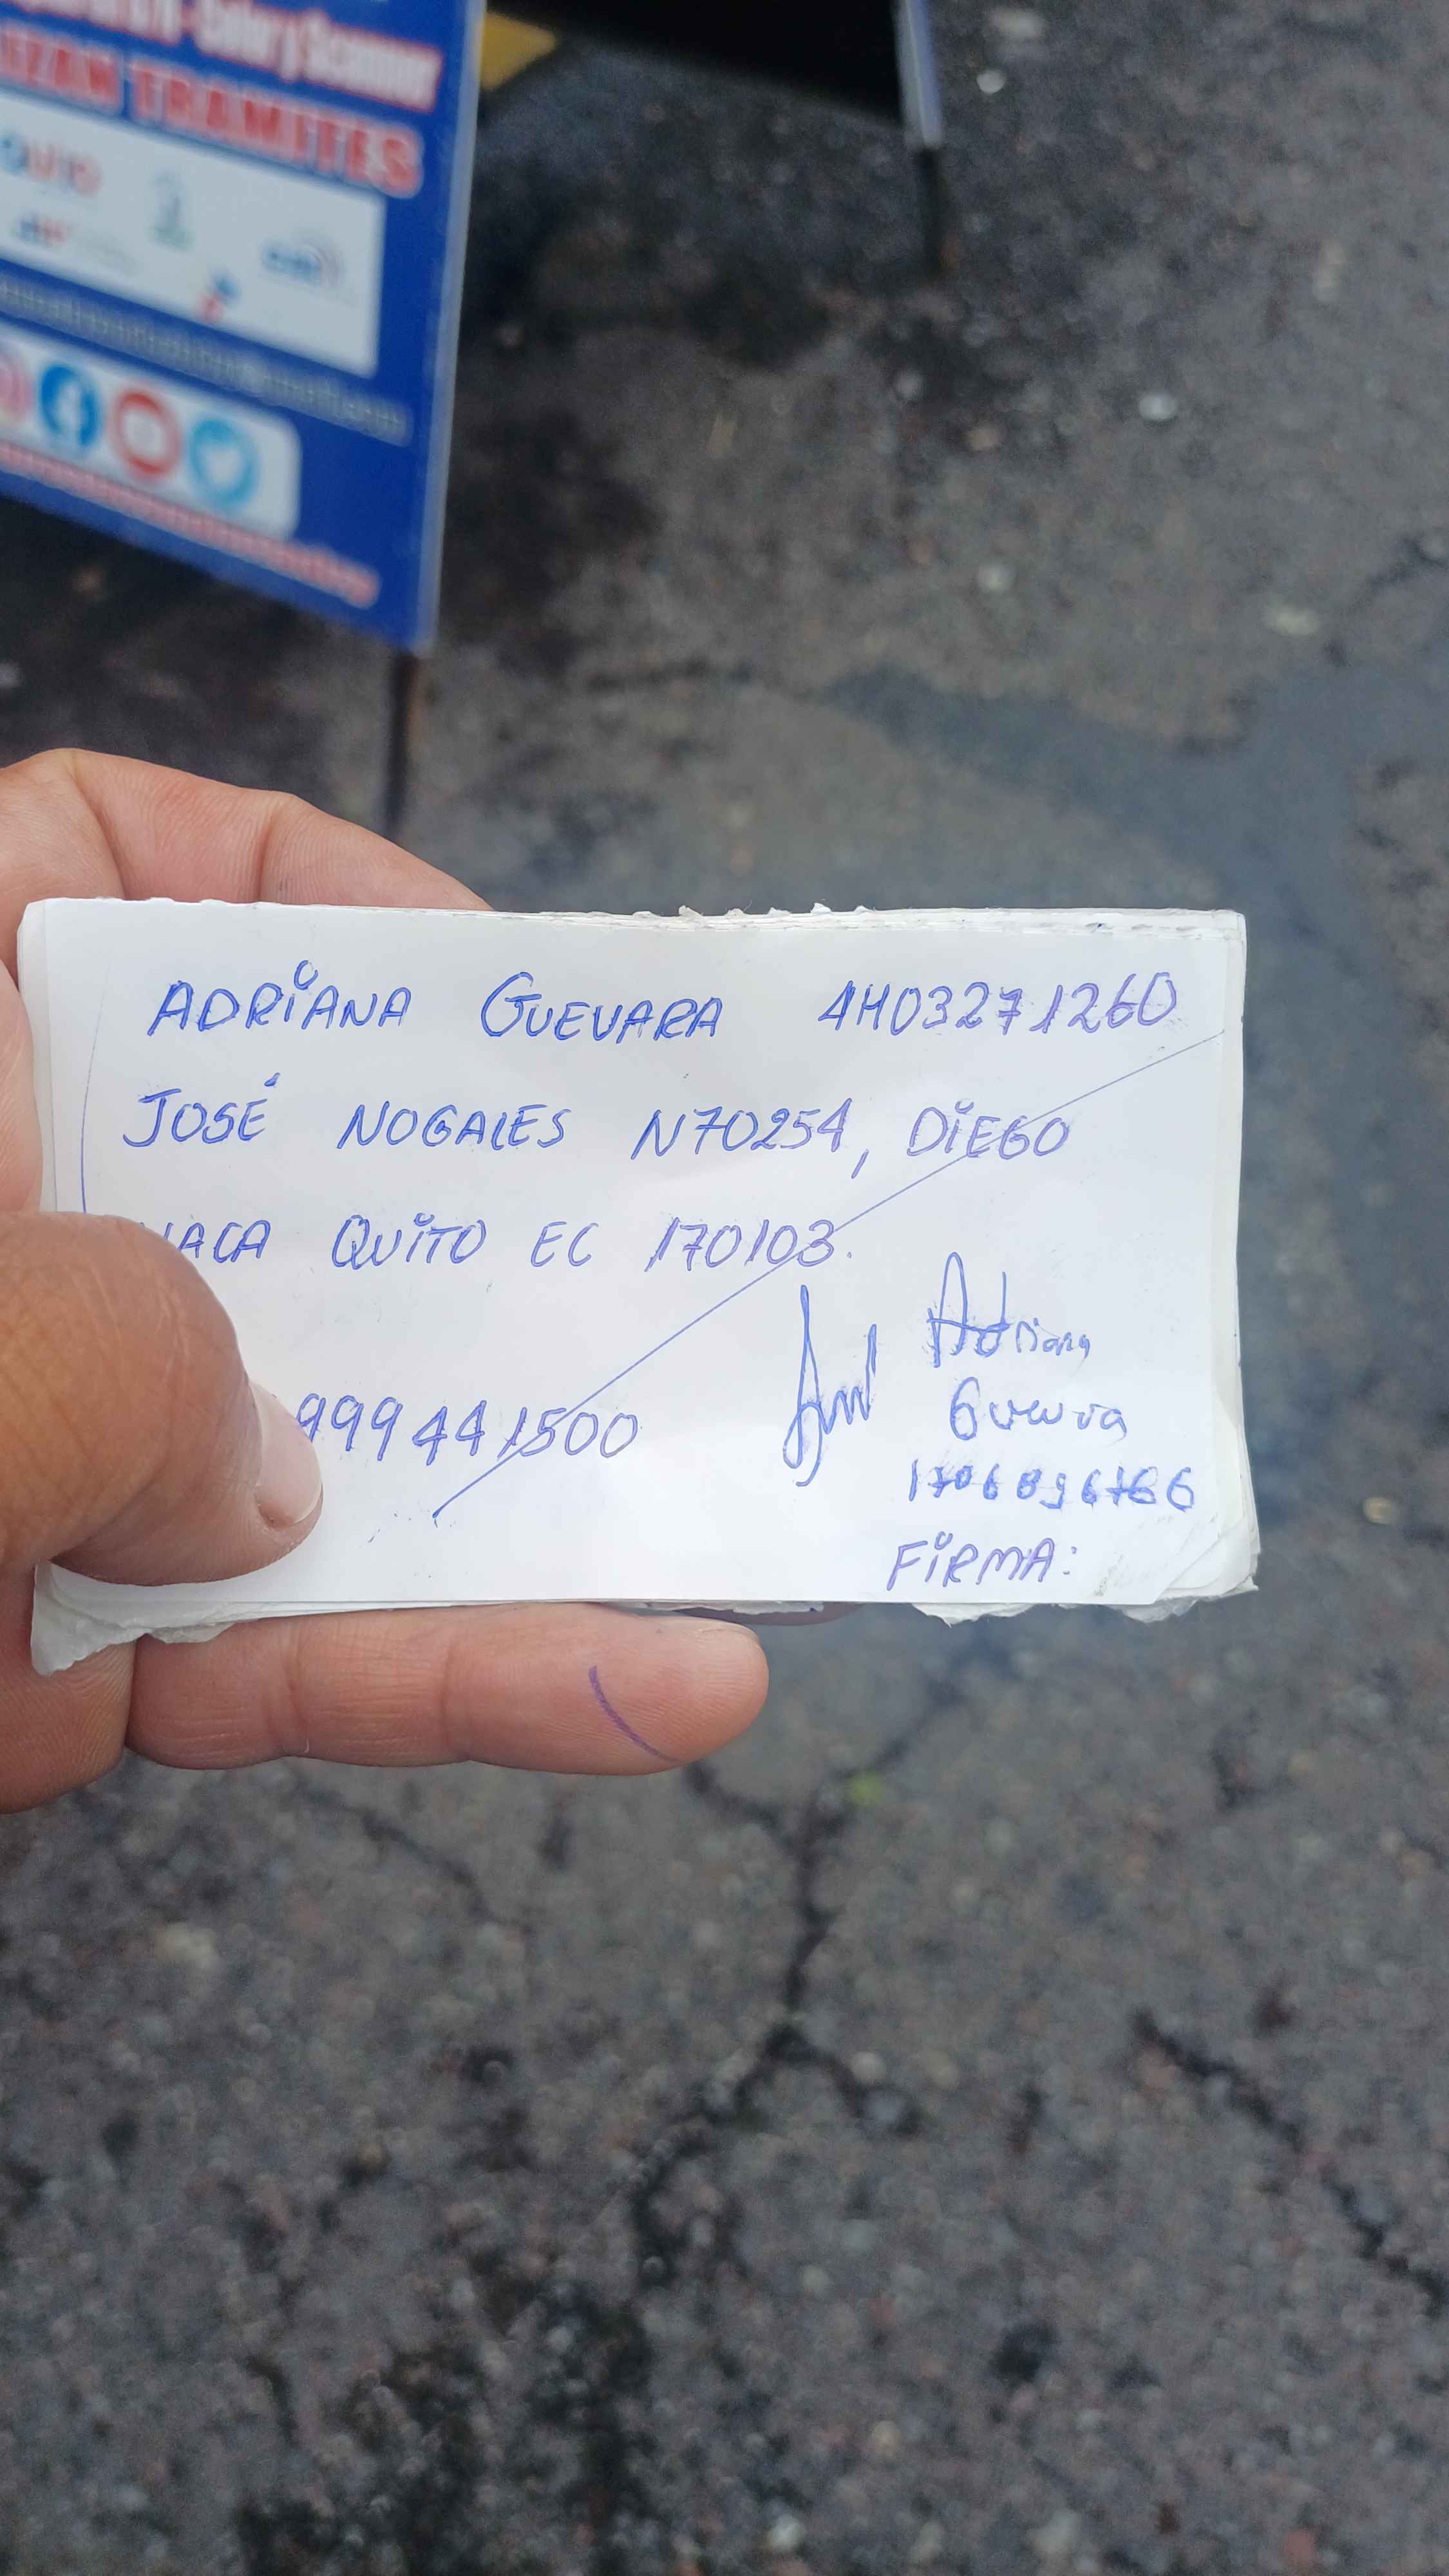 Color y Scanner
IZAN TRAMITES
ADRIANA GUEVARA 4H03271260
JOSÉ NOGALES N70254, DIEGO
VACA QUITO EC 170103.
999441500
Adriana
Guevara
1706896766
FIRMA: